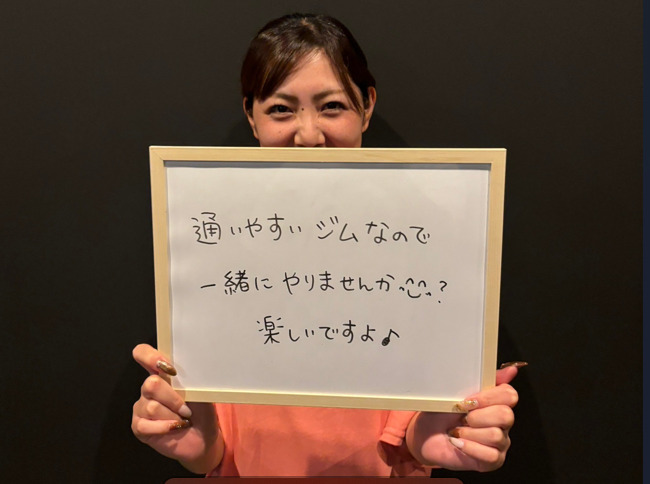 通いやすいジムなので
一緒にやりませんか^^?
楽しいですよ♪